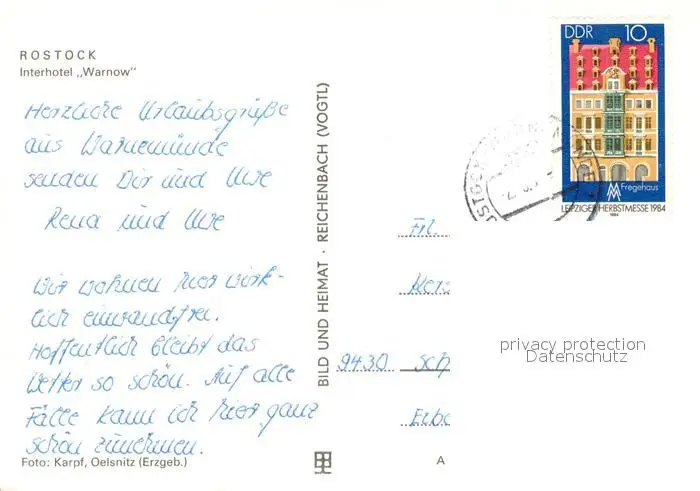 ROSTOCK
Interhotel „Warnow“
Herzliche Urlaubsgrüße
aus Warnemünde
senden Dir und Uwe
Rena und Uwe
Wir wohnen hier wirk-
lich einwandfrei.
Hoffentlich bleibt das
Wetter so schön. Auf alle
Fälle kann ich hier ganz
schön zunehmen.
Foto: Karpf, Oelsnitz (Erzgeb.)
BILD UND HEIMAT · REICHENBACH (VOGTL)
DDR 10
Fregehaus
LEIPZIGER HERBSTMESSE 1984
1984
Frl.
9430
A
privacy protection
Datenschutz